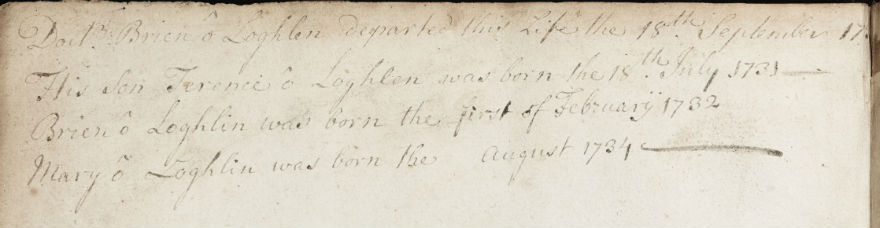 Doctr. Brien ô Loghlen departed this Life the 18th. September 17
His Son Terence ô Loghlen was born the 18th. July 1731
Brien ô Loghlin was born the first of February 1732
Mary ô Loghlin was born the August 1734